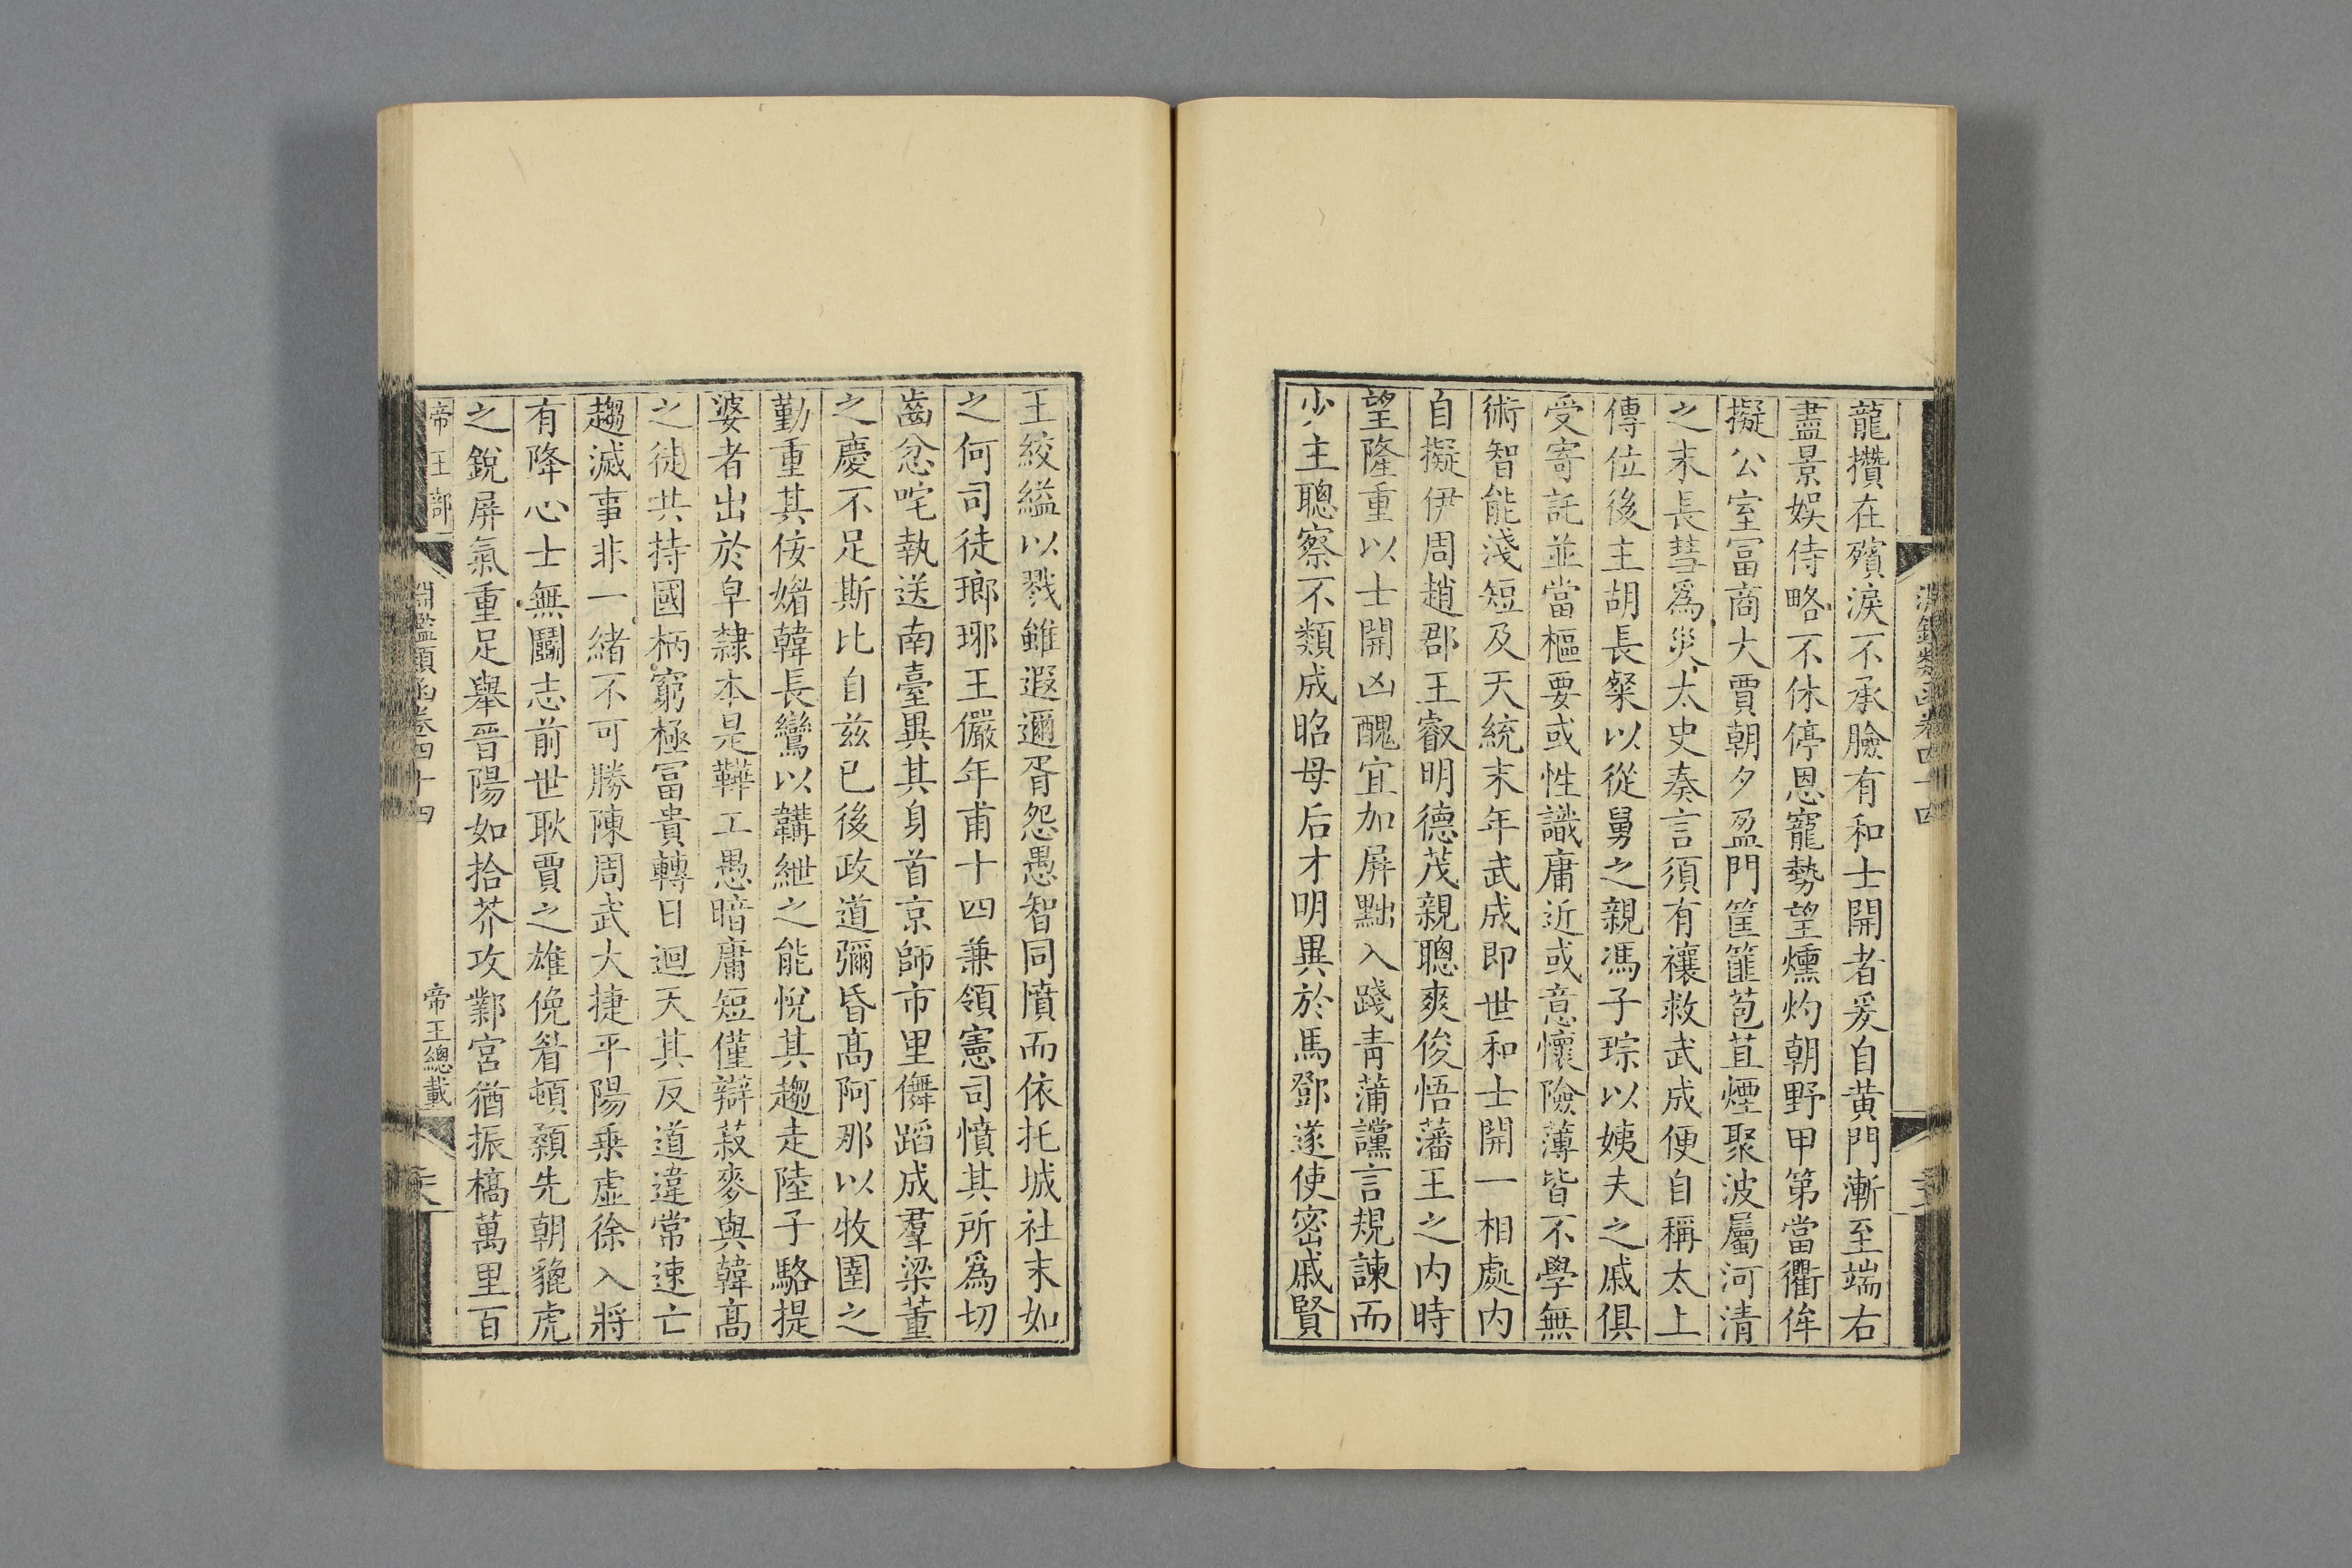 龍攢在殯淚不承臉有和士開者爰自黃門漸至端右
盡景娛侍略不休停恩寵勢望燻灼朝野甲第當衢侔
擬公室富商大賈朝夕盈門筐篚苞苴煙聚波屬河清
之末長彗爲災太史奏言須有禳救武成便自稱太上
傳位後主胡長粲以從舅之親馮子琮以姨夫之戚俱
受寄託並當樞要或性識庸近或意懷險薄皆不學無
術智能淺短及天統末年武成即世和士開一相處內
自擬伊周趙郡王叡明德茂親聰爽俊悟藩王之內時
望隆重以士開凶醜宜加屏黜入踐青蒲讜言規諫而
少主聰察不類成昭母后才明異於馬鄧遂使密戚賢
王絞縊以戮雖遐邇胥怨愚智同憤而依托城社末如
之何司徒瑯琊王儼年甫十四兼領憲司憤其所爲切
齒忿咤執送南臺異其身首京師市里儛蹈成羣梁董
之慶不足斯比自茲已後政道彌昏高阿那以牧圉之
勤重其佞媚韓長鸞以韝紲之能悅其趨走陸子駱提
婆者出於皁隸本是鞾工愚暗庸短僅辯菽麥與韓高
之徒共持國柄窮極富貴轉日迴天其反道違常速亡
趨滅事非一緒不可勝陳周武大捷平陽乗虛徐入將
有降心士無鬬志前世耿賈之雄俛眥頓顙先朝貔虎
之銳屏氣重足舉晉陽如拾芥攻鄴宮猶振槁萬里百
帝王部
淵鑑類函卷四十四
帝王總載